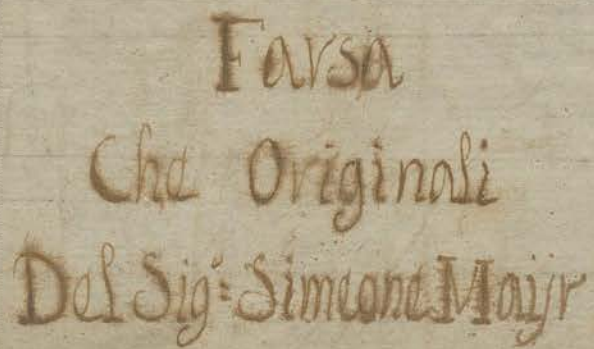 Farsa
Che Originali
Del Sig.^e: Simeone Maijr